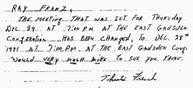 RAY FRANZ,
THE MEETING THAT WAS SET FOR THURSDAY
DEC. 24, AT 7:00 P.M. AT THE EAST GADSDEN
CONGREGATION HAS BEEN CHANGED, TO DEC. 28th
1981 AT 7:00 P.M. AT THE EAST GADSDEN CONG.
WOULD VERY MUCH LIKE TO SEE YOU THERE.